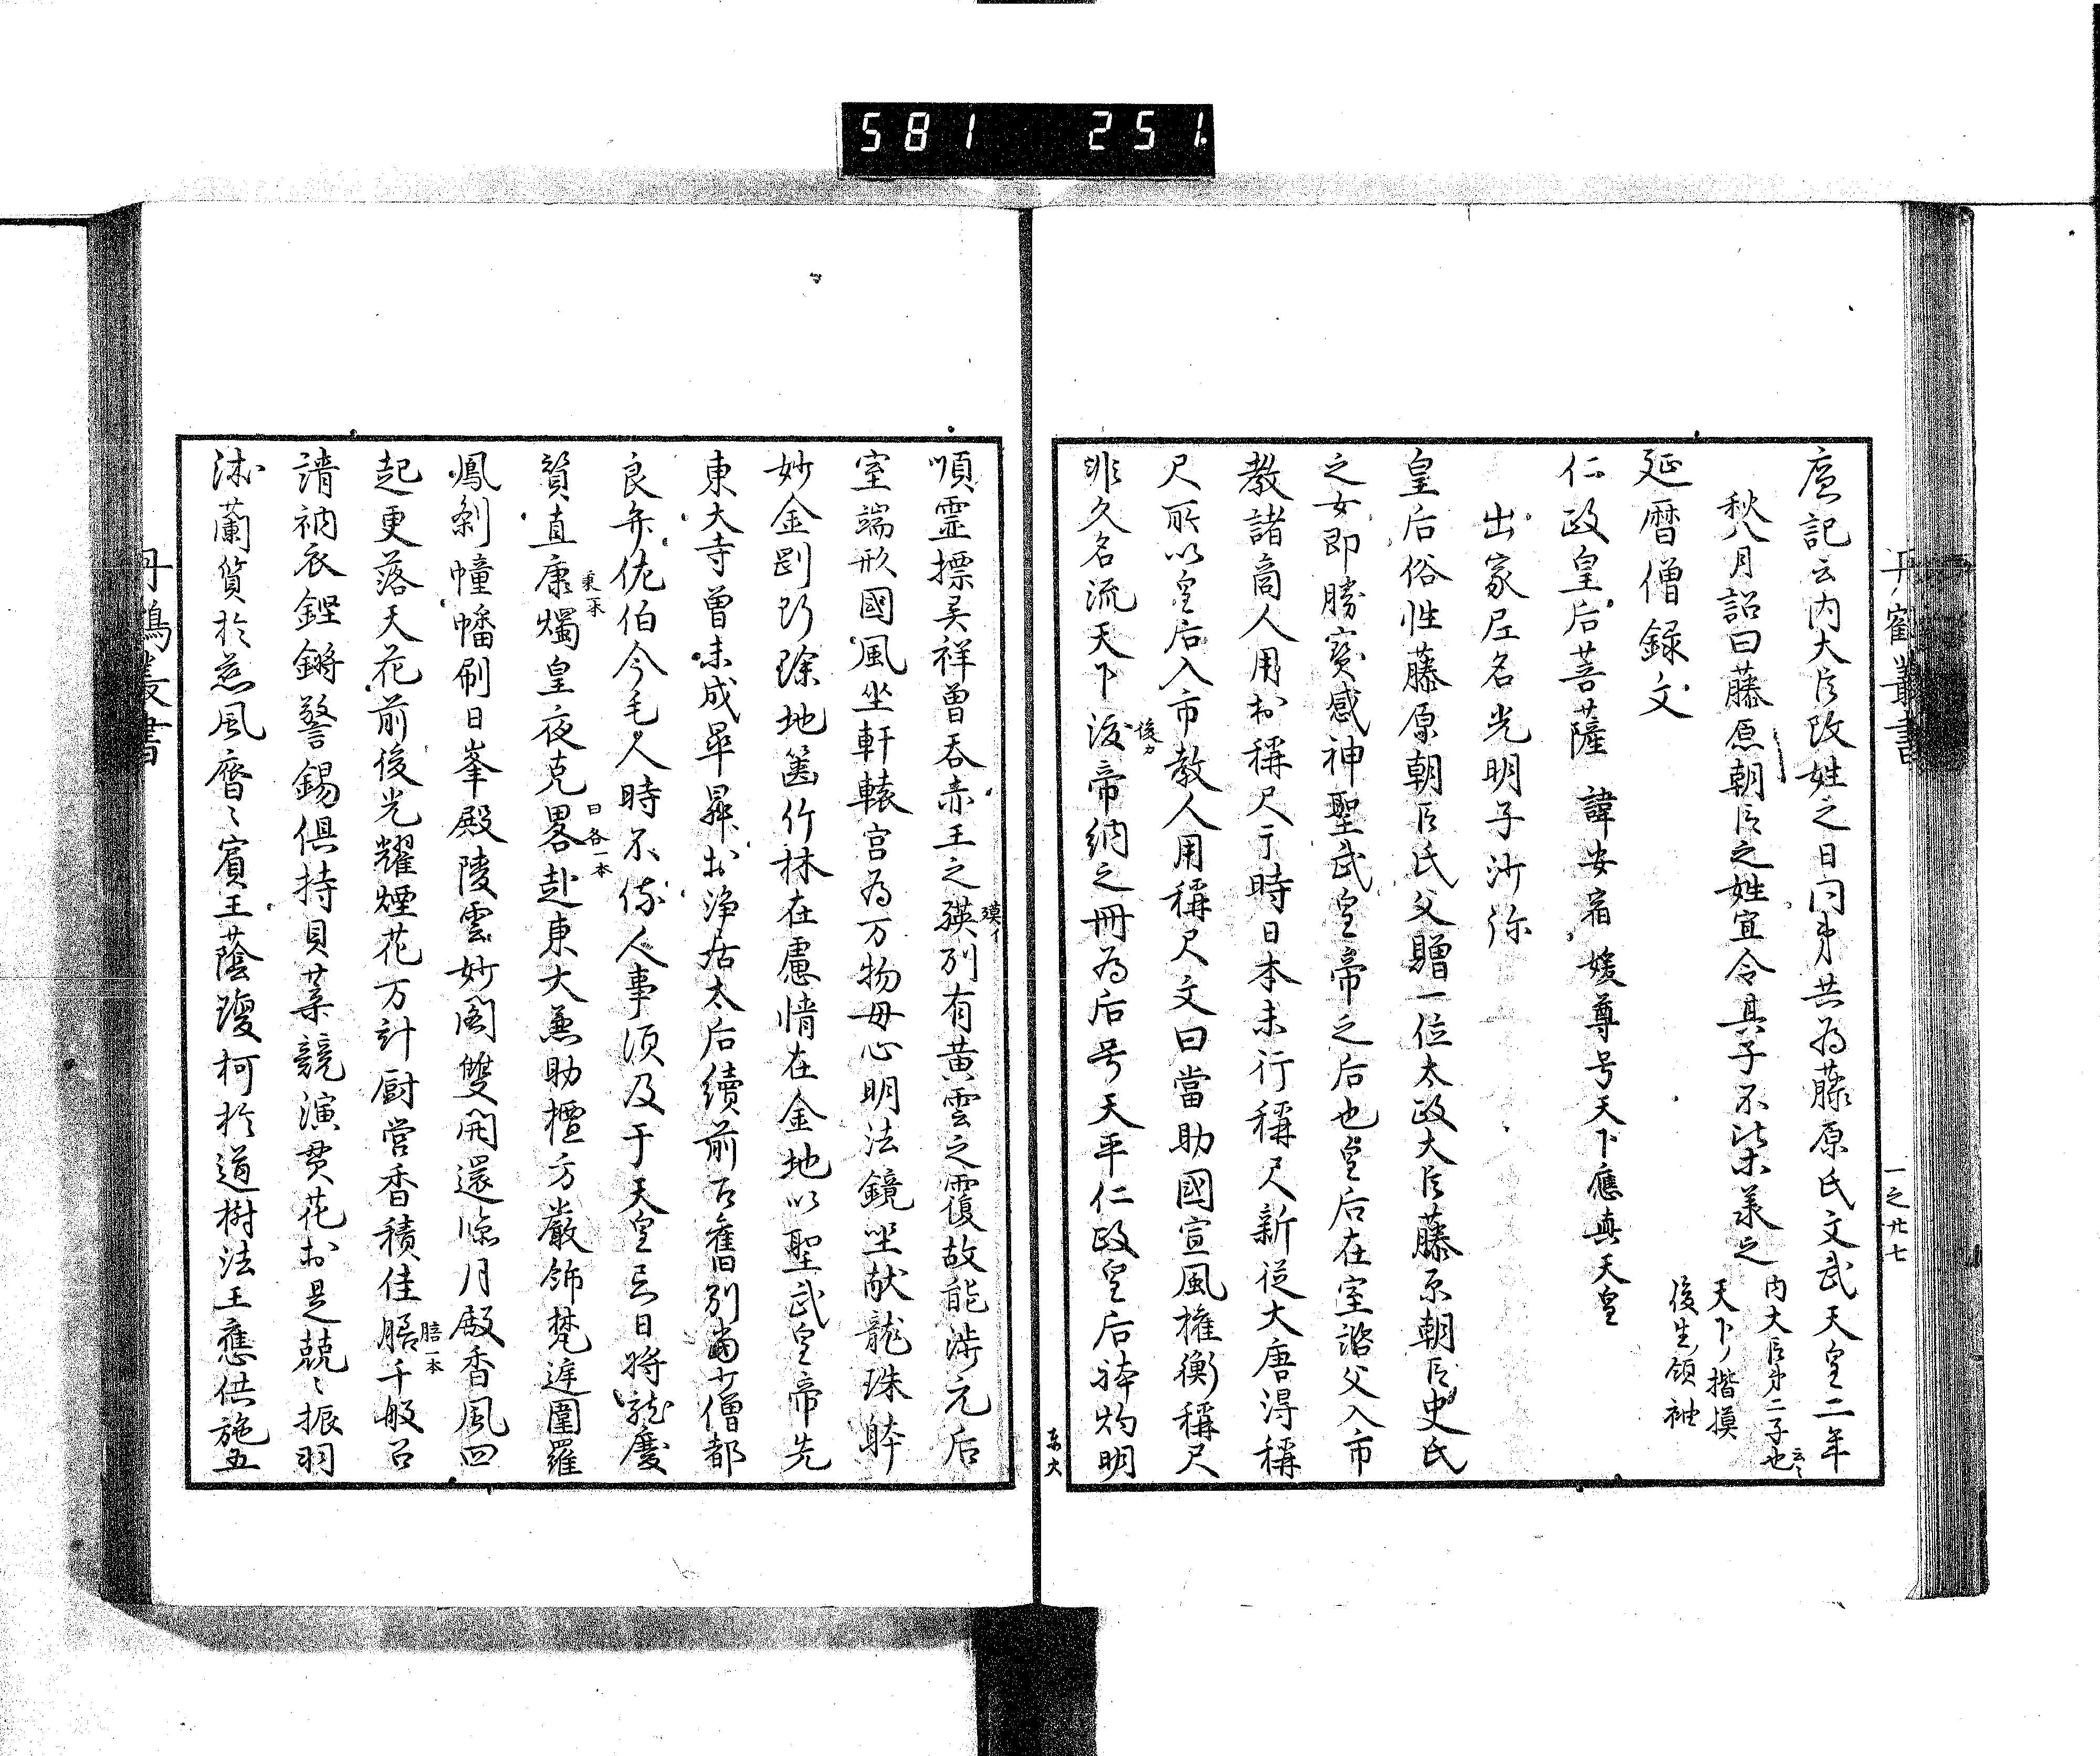 581 251
丹鶴叢書
一之廿七
扈記云内大臣改姓之日同弟共為藤原氏文武天皇二年
秋八月詔曰藤原朝臣之姓宜令其子不比等承之
内大臣第二子也云々
天下揩摸
後生領袖
延暦僧録文
仁政皇后菩薩 諱安宿媛尊号天下應真天皇
出家尼名光明子沙弥
皇后俗性藤原朝臣氏父贈一位太政大臣藤原朝臣史氏
之女即勝寳感神聖武皇帝之后也皇后在室諮父入市
教諸商人用於稱尺于時日本未行稱尺新従大唐得稱
尺所以皇后入市教人用稱尺文曰當助國宣風権衡稱尺
非久名流天下後帝納之冊為后号天平仁政皇后体灼明
後カ
东大
頃霊摽異祥曽吞赤王之瑛列有黄雲之覆故能渉元后
瑛イ
室端形國風坐軒轅宮為万物母心明法鏡坐献龍珠躰
妙金剛巧除地篋竹林在慮情在金地以聖武皇帝先
東大寺曽未成畢昇於浄居太后續前召舊別當少僧都
良弁佐伯今毛人時不係人事須及于天皇忌日将龍慶
賀直康燭皇夜克畧赴東大無助檀方嚴飾梵筵圍羅
東一本
日各一本
鳳刹幢幡刷日峯殿陵雲妙閣雙開還涼月殿香風四
起更落天花前後光耀煙花万計厨営香積佳膳千般召
膳一本
請衲衣鏗鏘警錫俱持貝葉競演貫花於是兢々振羽
沫蘭貨於慈風齊々賓王蔭瓊柯於道樹法王應供施五
丹鶴叢書